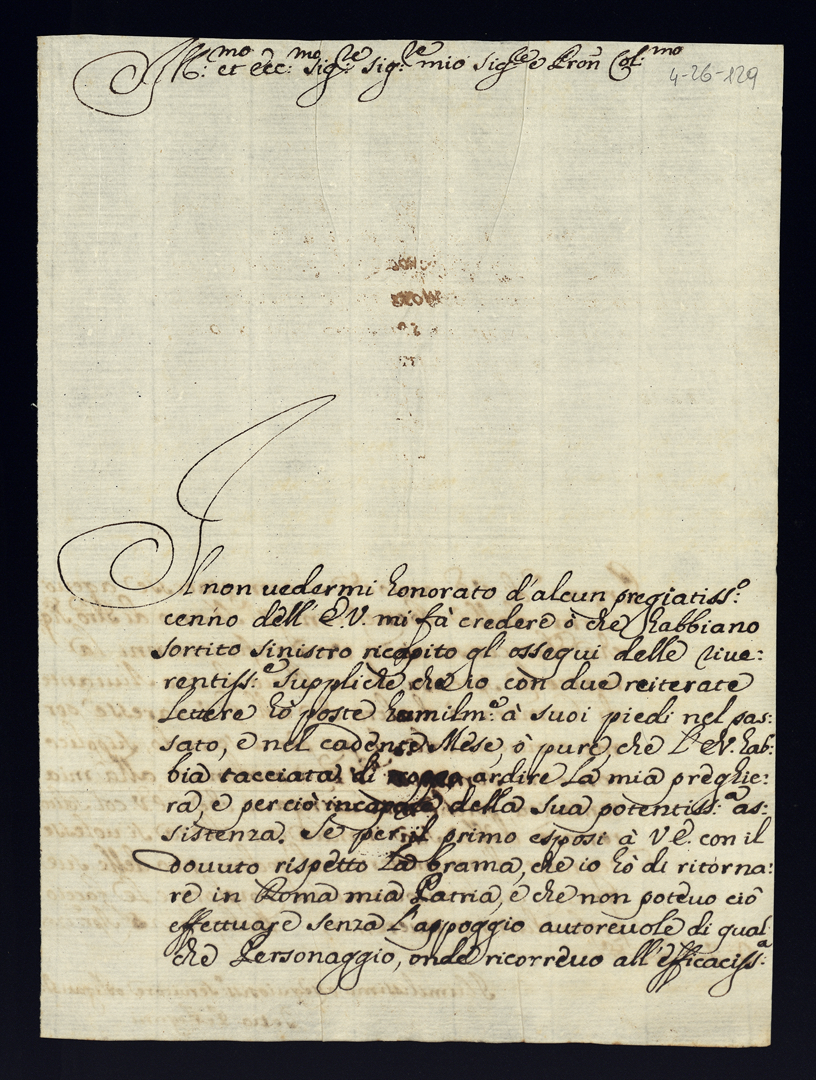 Ill:mo et ecc:mo sig:re sig:re mio sig:re e Pron Col:mo
4-26-129
Il non uedermi honorato d'alcun pregiatiss:o
cenno dell' E.V. mi fà credere ò che habbiano
sortito sinistro ricapito gl' ossequi delle riue:
rentiss:e suppliche che io con due reiterate
lettere hò poste humilm:e à suoi piedi nel pas:
sato, e nel cadente Mese, ò pure che l'E.V. hab:
bia tacciata di troppo ardire la mia preghie:
ra, e perciò incapace della sua potentiss:a as:
sistenza. Se per il primo esposi à V.E. con il
douuto rispetto la brama, che io hò di ritorna:
re in Roma mia Patria, e che non poteuo ciò
effettuare senza l'appoggio autoreuole di qual
che Personaggio, onde ricorreuo all'efficaciss:a